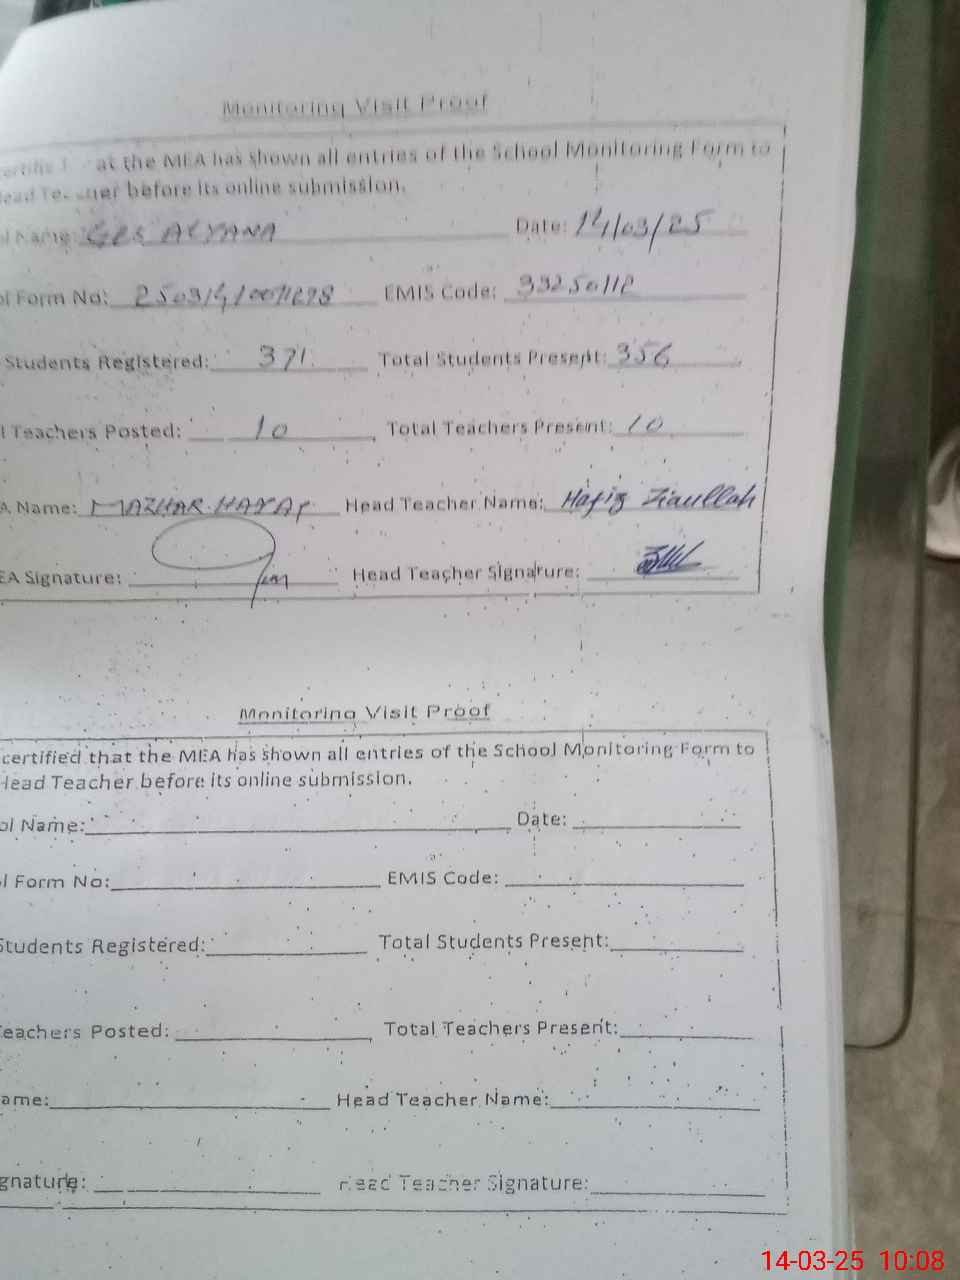 Monitoring Visit Proof
at the MEA has shown all entries of the School Monitoring Form to
Head Teacher before its online submission.
Name: GES ALYANA Date: 14/03/25
Form No: EMIS Code: 33250112
Students Registered: 371 Total Students Present: 356
l Teachers Posted: 10 Total Teachers Present: 10
A Name: MAZHAR HAYAT Head Teacher Name: Hafiz Ziaullah
EA Signature: Head Teacher Signature:
Monitoring Visit Proof
certified that the MEA has shown all entries of the School Monitoring Form to
Head Teacher before its online submission.
ol Name: Date:
l Form No: EMIS Code:
Students Registered: Total Students Present:
eachers Posted: Total Teachers Present:
ame: Head Teacher Name:
gnature: Head Teacher Signature:
14-03-25 10:08